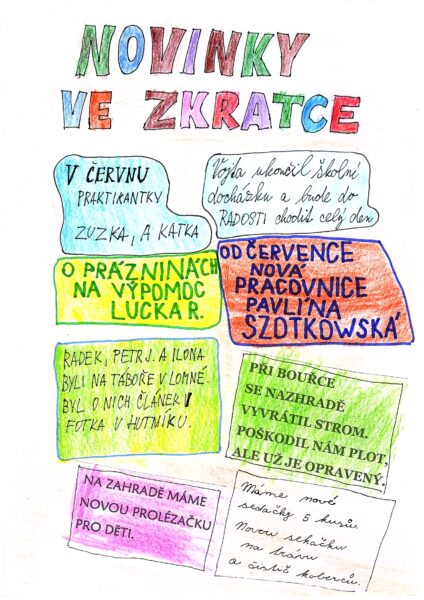 NOVINKY
VE ZKRATCE
V ČERVNU
PRAKTIKANTKY
ZUZKA, A KATKA
Vojta ukončil školní
docházku a bude do
RADOSTI chodit celý den
O PRÁZNINÁCH
NA VÝPOMOC
LUCKA R.
OD ČERVENCE
NOVÁ
PRACOVNICE
PAVLÍNA
SZOTKOWSKÁ
RADEK, PETR J. A ILONA
BYLI NA TÁBOŘE V LOMNÉ.
BYL O NICH ČLÁNEK I
FOTKA V HUTNÍKU.
PŘI BOUŘCE
SE NAZHRADĚ
VYVRÁTIL STROM.
POŠKODIL NÁM PLOT,
ALE UŽ JE OPRAVENÝ.
NA ZAHRADĚ MÁME
NOVOU PROLÉZAČKU
PRO DĚTI.
Máme nové
sedačky 5 kusů.
Novou sekačku
na trávu
a čistič koberců.